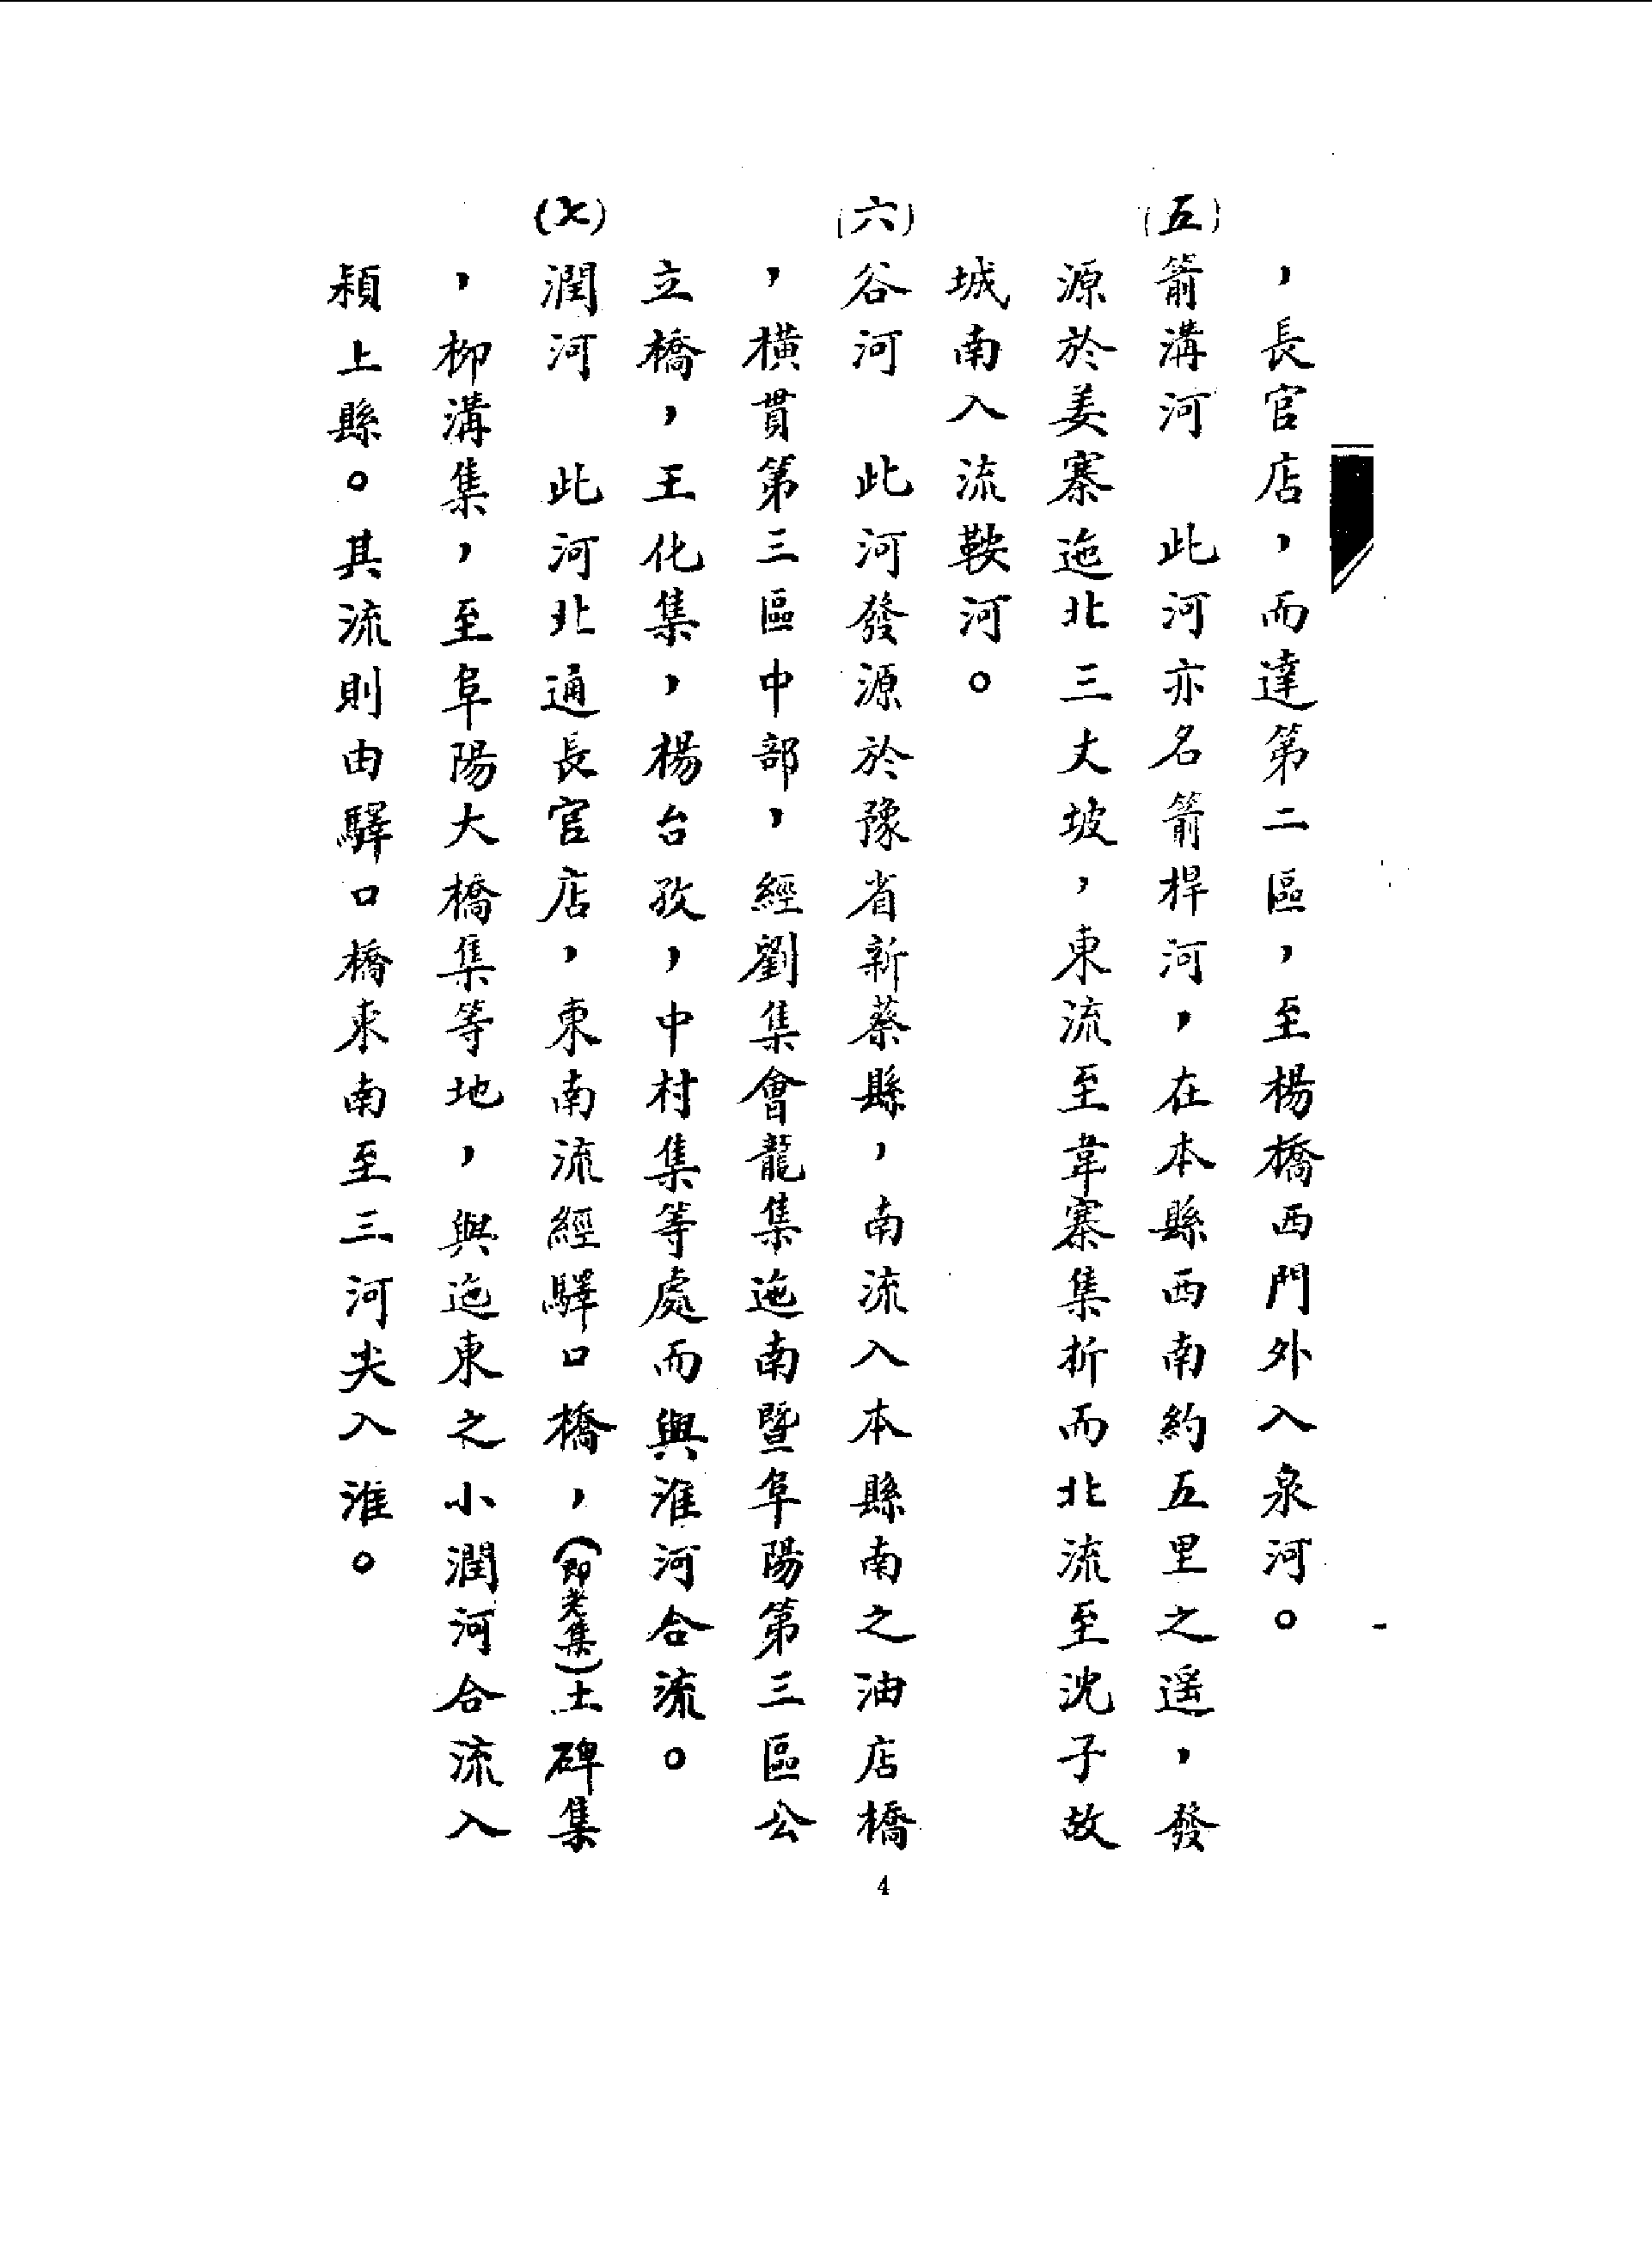 ，長官店，而達第二區，至楊橋西門外入泉河。
(五)箭溝河　此河亦名箭桿河，在本縣西南約五里之遥，發
源於姜寨迤北三丈坡，東流至韋寨集折而北流至沈子故
城南入流鞍河。
(六)谷河　此河發源於豫省新蔡縣，南流入本縣南之油店橋
，橫貫第三區中部，經劉集會龍集迤南暨阜陽第三區公
立橋，王化集，楊台孜，中村集等處而與淮河合流。
(七)潤河　此河北通長官店，東南流經驛口橋，(即老集)土碑集
，柳溝集，至阜陽大橋集等地，與迤東之小潤河合流入
潁上縣。其流則由驛口橋東南至三河尖入淮。
4